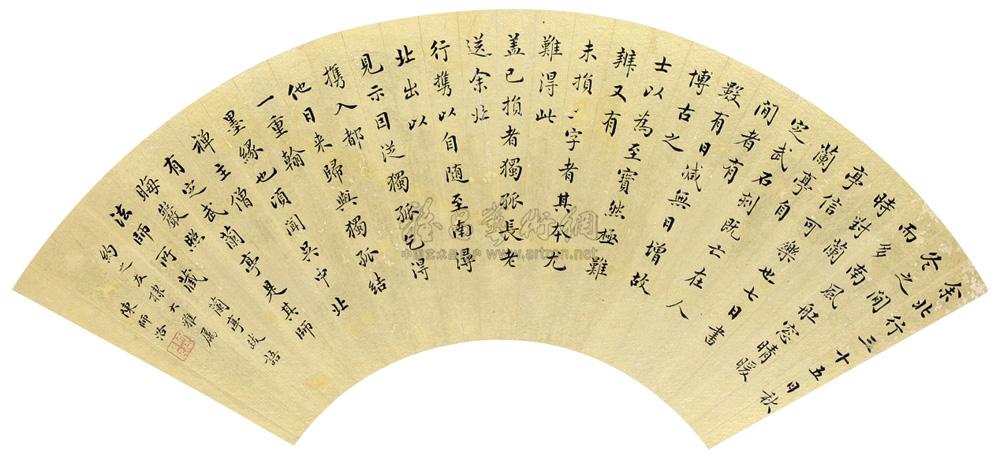 余北行三十五日秋
冬之間
而多南風舡窓晴暖
時對蘭
亭信可樂也七日書
蘭亭自
定武石刻既亡在人
間者有
數有日減無日增故
博古之
士以為至寶然極難
辨又有
未損字者其本尤
難得此
盖已損者獨孤長老
送余北
行攜以自隨至南潯
北出以
見示因從獨孤乞得
攜入都
他日来歸與獨孤結
一重翰
墨緣也頃聞吳中北
禅主僧
有定武蘭亭是其師
晦巖照
法師所藏 蘭亭跋語
約之五棣大雅屬
陳師洽